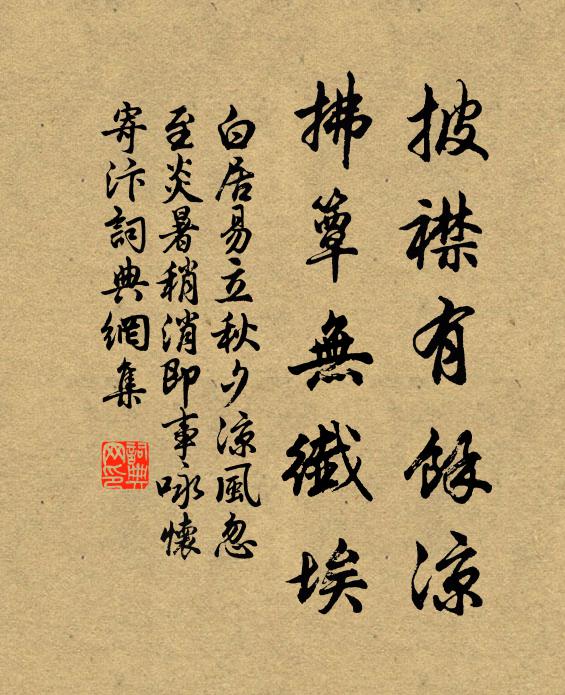 披襟有餘涼
拂簟無纖埃
白居易立秋夕涼風忽
至炎暑稍消即事咏懷
寄汴詞典網集
詞典
网印